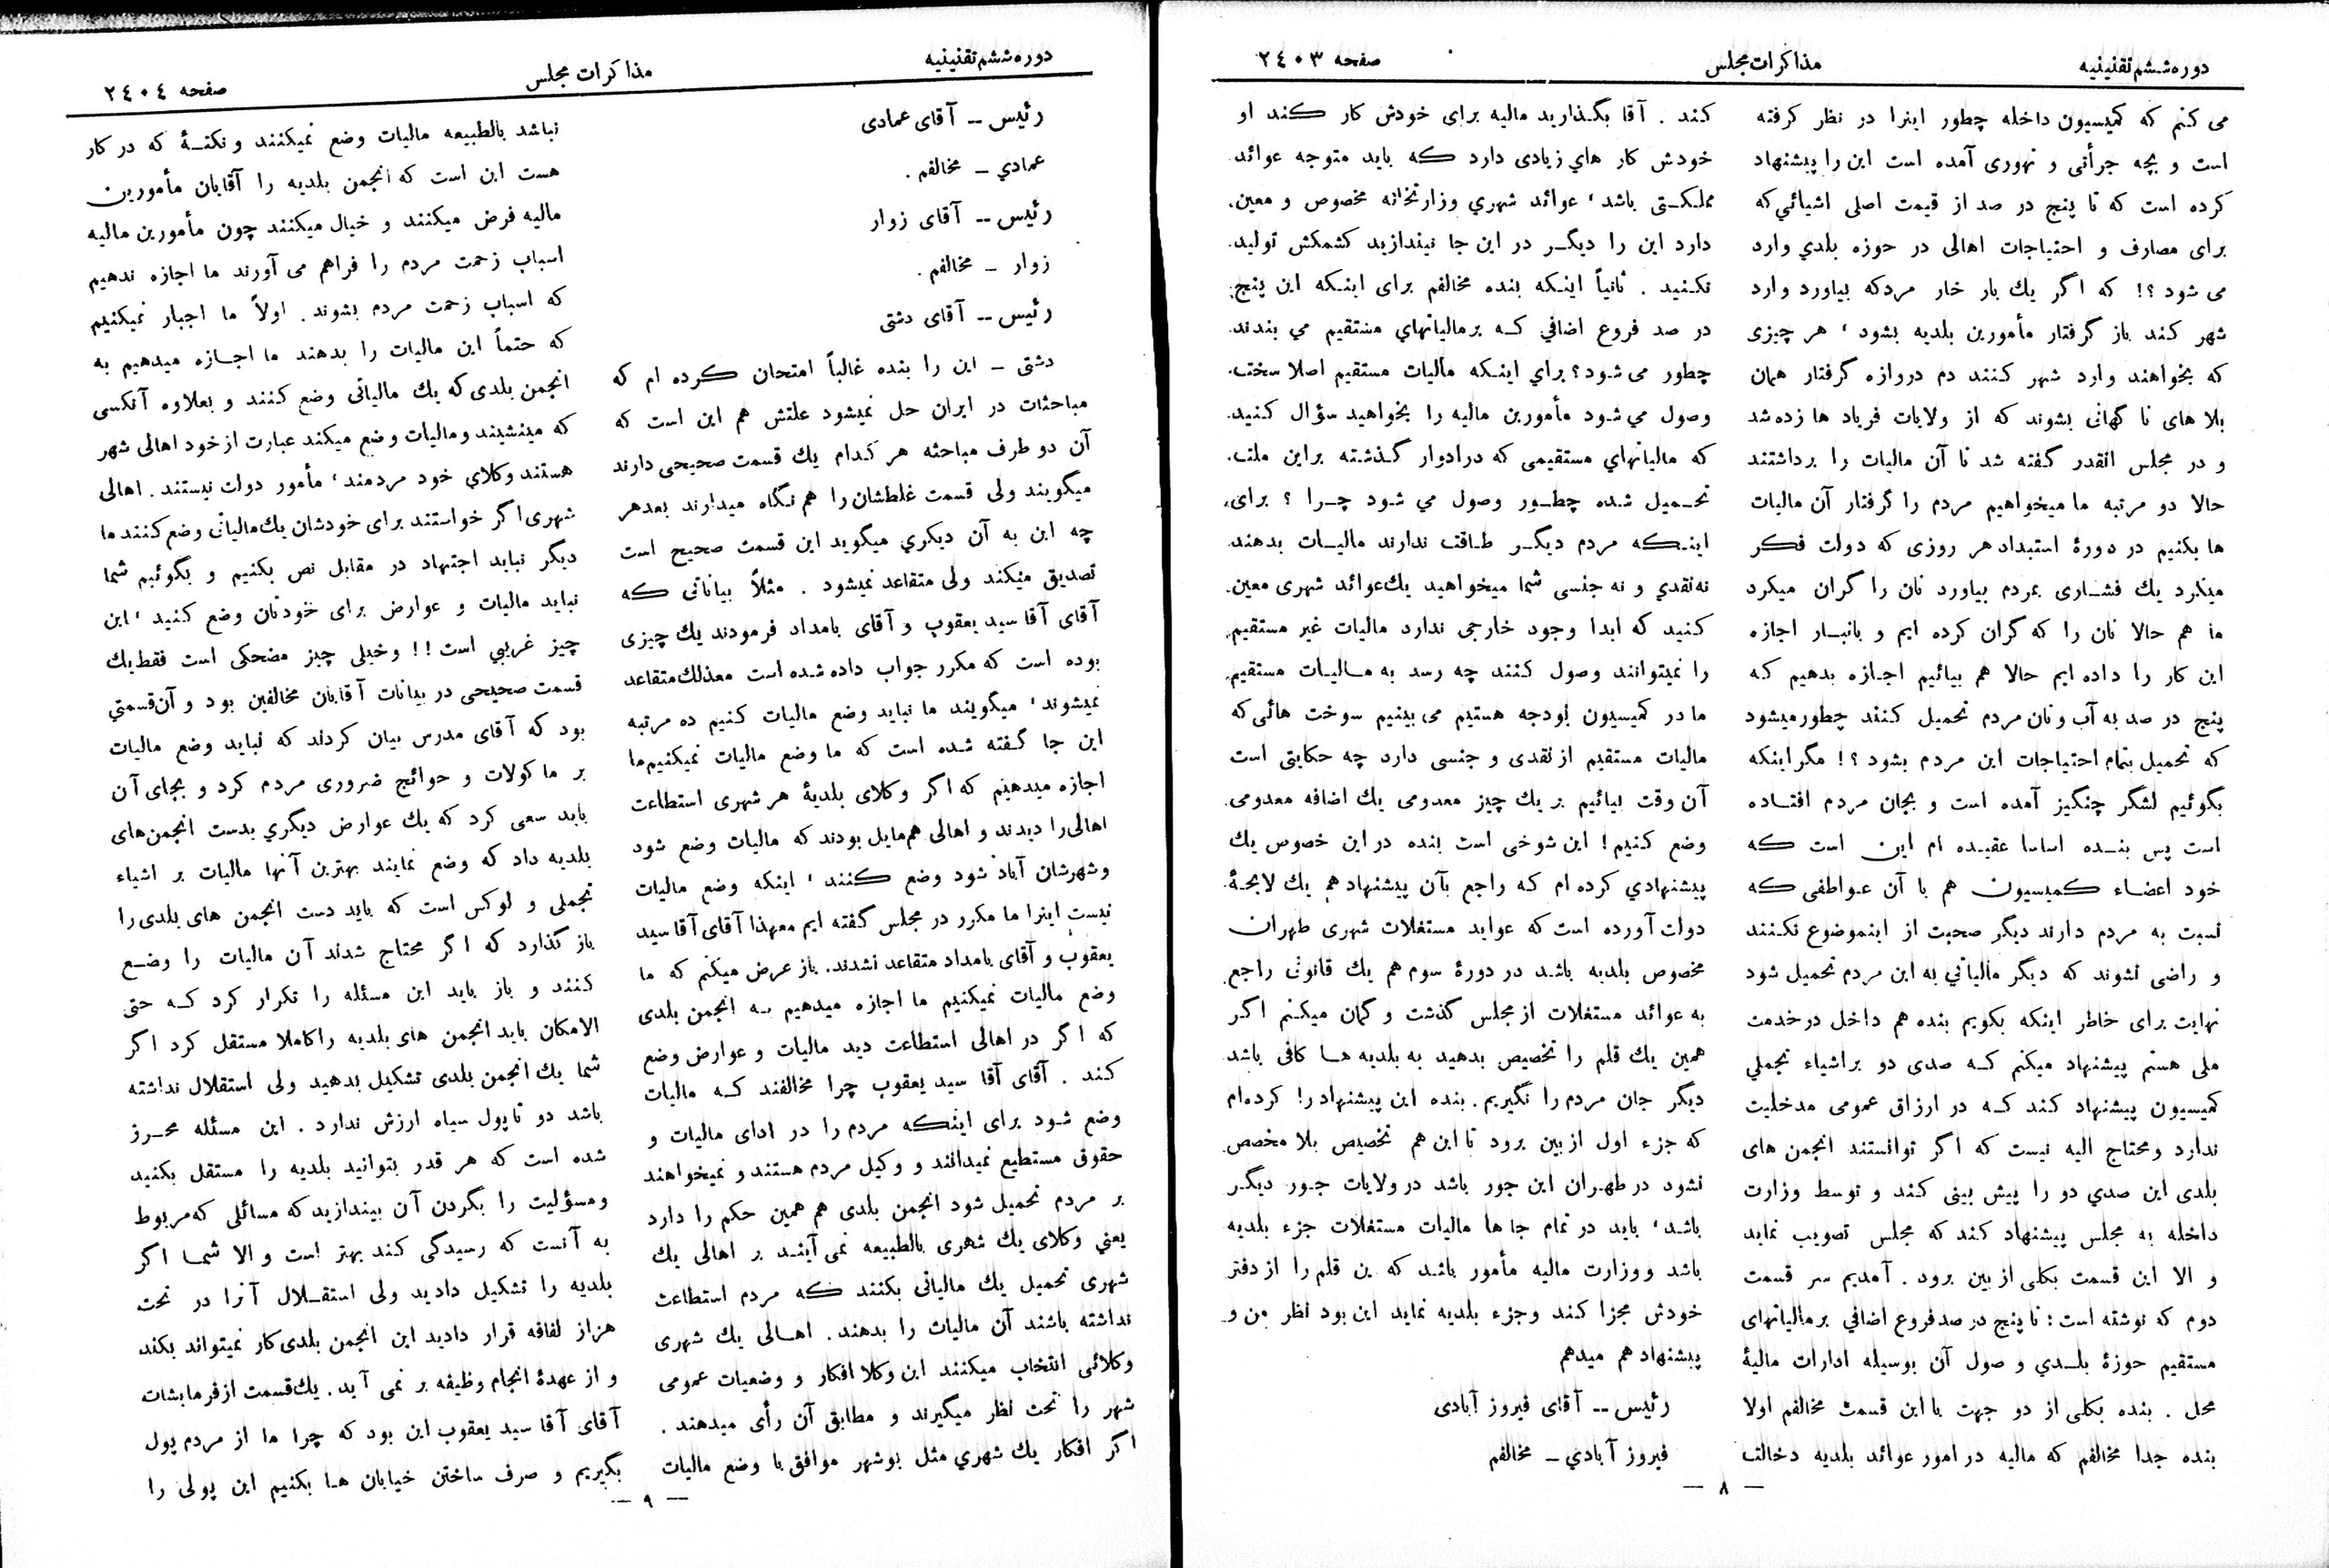 دوره ششم تقنینیه
مذاکرات مجلس
صفحه ۲٤۰۳
می کنم که کمیسیون داخله چطور اینرا در نظر گرفته
است و بچه جرأتی و تهوری آمده است این را پیشنهاد
کرده است که تا پنج در صد از قیمت اصلی اشیائي که
برای مصارف و احتیاجات اهالی در حوزه بلدي وارد
می شود ؟! که اگر یك بار خار مردکه بیاورد وارد
شهر کند باز گرفتار مأمورین بلدیه بشود ، هر چیزی
که بخواهند وارد شهر کنند دم دروازه گرفتار همان
بلا های نا گهانی بشوند که از ولایات فریاد ها زده شد
و در مجلس انقدر گفته شد تا آن مالیات را برداشتند
حالا دو مرتبه ما میخواهیم مردم را گرفتار آن مالیات
ها بکنیم در دورهٔ استبداد هر روزی که دولت فکر
میکرد یك فشاری بمردم بیاورد نان را گران میکرد
ما هم حالا نان را که گران کرده ایم و بانبار اجازه
این کار را داده ایم حالا هم بیائیم اجازه بدهیم که
پنج در صد به آب و نان مردم تحمیل کنند چطور میشود
که تحمیل بتمام احتیاجات این مردم بشود ؟! مگر اینکه
بگوئیم لشگر چنگیز آمده است و بجان مردم افتاده
است پس بنده اساسا عقیده ام این است که
خود اعضاء کمیسیون هم با آن عواطفی که
نسبت به مردم دارند دیگر صحبت از اینموضوع نکنند
و راضی نشوند که دیگر مالیاتي به این مردم تحمیل شود
نهایت برای خاطر اینکه بگویم بنده هم داخل در خدمت
ملی هستم پیشنهاد میکنم که صدی دو بر اشیاء تجملي
کمیسیون پیشنهاد کند که در ارزاق عمومی مدخلیت
ندارد و محتاج الیه نیست که اگر توانستند انجمن های
بلدی این صدي دو را پیش بینی کند و توسط وزارت
داخله به مجلس پیشنهاد کند که مجلس تصویب نماید
و الا این قسمت بکلی از بین برود . آمدیم سر قسمت
دوم که نوشته است : تا پنج در صد فروع اضافي بر مالیاتهای
مستقیم حوزهٔ بلدي وصول آن بوسیله ادارات مالیهٔ
محل . بنده بکلی از دو جهت با این قسمت مخالفم اولا
بنده جدا مخالفم که مالیه در امور عوائد بلدیه دخالت
کند . آقا بگذارید مالیه برای خودش کار کند او
خودش کار هاي زیادی دارد که باید متوجه عوائد
مملکتی باشد ، عوائد شهري وزارتخانه مخصوص و معین
دارد این را دیگر در این جا نیندازید کشمکش تولید
نکنید . ثانیاً اینکه بنده مخالفم برای اینکه این پنج
در صد فروع اضافي که بر مالیاتهاي مستقیم مي بندند
چطور می شود ؟ براي اینکه مالیات مستقیم اصلا سخت
وصول مي شود مأمورین مالیه را بخواهید سؤال کنید
که مالیاتهاي مستقیمی که در ادوار گذشته بر این ملت
تحمیل شده چطور وصول مي شود چرا ؟ برای
اینکه مردم دیگر طاقت ندارند مالیات بدهند
نه نقدي و نه جنسی شما میخواهید یك عوائد شهری معین
کنید که ابدا وجود خارجی ندارد مالیات غیر مستقیم
را نمیتوانند وصول کنند چه رسد به مالیات مستقیم
ما در کمیسیون بودجه هستیم می بینیم سوخت هائی که
مالیات مستقیم از نقدی و جنسی دارد چه حکایتی است
آن وقت بیائیم بر یك چیز معدومی یك اضافه معدومی
وضع کنیم ! این شوخی است بنده در این خصوص یك
پیشنهادي کرده ام که راجع بآن پیشنهاد هم یك لایحهٔ
دولت آورده است که عواید مستغلات شهری طهران
مخصوص بلدیه باشد در دورهٔ سوم هم یك قانونی راجع
به عوائد مستغلات از مجلس گذشت و گمان میکنم اگر
همین یك قلم را تخصیص بدهید به بلدیه ها کافی باشد
دیگر جان مردم را نگیریم . بنده این پیشنهاد را کرده ام
که جزء اول از بین برود تا این هم تخصیص بلا مخصص
نشود در طهران این جور باشد در ولایات جور دیگر
باشد ، باید در تمام جا ها مالیات مستغلات جزء بلدیه
باشد و وزارت مالیه مأمور باشد که این قلم را از دفتر
خودش مجزا کند و جزء بلدیه نماید این بود نظر من و
پیشنهاد هم میدهم
رئیس -- آقای فیروز آبادی
فیروز آبادي - مخالفم
— ۸ —
دوره ششم تقنینیه
مذاکرات مجلس
صفحه ۲٤۰٤
رئیس -- آقای عمادی
عمادي - مخالفم .
رئیس -- آقای زوار
زوار - مخالفم .
رئیس -- آقای دشتی
دشتی - این را بنده غالباً امتحان کرده ام که
مباحثات در ایران حل نمیشود علتش هم این است که
آن دو طرف مباحثه هر کدام یك قسمت صحیحی دارند
میگویند ولی قسمت غلطشان را هم نگاه میدارند بعد هر
چه این به آن دیگري میگوید این قسمت صحیح است
تصدیق میکند ولی متقاعد نمیشود . مثلاً بیاناتی که
آقای آقا سید یعقوب و آقای بامداد فرمودند یك چیزی
بوده است که مکرر جواب داده شده است معذلك متقاعد
نمیشوند ، میگویند ما نباید وضع مالیات کنیم ده مرتبه
این جا گفته شده است که ما وضع مالیات نمیکنیم ما
اجازه میدهیم که اگر وکلای بلدیهٔ هر شهری استطاعت
اهالی را دیدند و اهالی هم مایل بودند که مالیات وضع شود
و شهرشان آباد شود وضع کنند ، اینکه وضع مالیات
نیست اینرا ما مکرر در مجلس گفته ایم معهذا آقای آقا سید
یعقوب و آقای بامداد متقاعد نشدند . باز عرض میکنم که ما
وضع مالیات نمیکنیم ما اجازه میدهیم به انجمن بلدی
که اگر در اهالی استطاعت دید مالیات و عوارض وضع
کند . آقای آقا سید یعقوب چرا مخالفند که مالیات
وضع شود برای اینکه مردم را در ادای مالیات و
حقوق مستطیع نمیدانند و وکیل مردم هستند و نمیخواهند
بر مردم تحمیل شود انجمن بلدی هم همین حکم را دارد
یعني وکلای یك شهری بالطبیعه نمی آیند بر اهالی یك
شهری تحمیل یك مالیاتی بکنند که مردم استطاعت
نداشته باشند آن مالیات را بدهند . اهالی یك شهری
وکلائی انتخاب میکنند این وکلا افکار و وضعیات عمومی
شهر را تحت نظر میگیرند و مطابق آن رأی میدهند .
اگر افکار یك شهري مثل بوشهر موافق با وضع مالیات
نباشد بالطبیعه مالیات وضع نمیکنند و نکتهٔ که در کار
هست این است که انجمن بلدیه را آقایان مأمورین
مالیه فرض میکنند و خیال میکنند چون مأمورین مالیه
اسباب زحمت مردم را فراهم می آورند ما اجازه ندهیم
که اسباب زحمت مردم بشوند . اولاً ما اجبار نمیکنیم
که حتماً این مالیات را بدهند ما اجازه میدهیم به
انجمن بلدی که یك مالیاتی وضع کنند و بعلاوه آنکسی
که مینشیند و مالیات وضع میکند عبارت از خود اهالی شهر
هستند وکلاي خود مردمند ، مأمور دولت نیستند . اهالی
شهری اگر خواستند برای خودشان یك مالیاتی وضع کنند ما
دیگر نباید اجتهاد در مقابل نص بکنیم و بگوئیم شما
نباید مالیات و عوارض برای خودتان وضع کنید ، این
چیز غریبي است !! و خیلی چیز مضحکی است فقط یك
قسمت صحیحی در بیانات آقایان مخالفین بود و آن قسمتي
بود که آقای مدرس بیان کردند که نباید وضع مالیات
بر ماکولات و حوائج ضروری مردم کرد و بجای آن
باید سعی کرد که یك عوارض دیگري بدست انجمن های
بلدیه داد که وضع نمایند بهترین آنها مالیات بر اشیاء
تجملی و لوکس است که باید دست انجمن های بلدی را
باز گذارد که اگر محتاج شدند آن مالیات را وضع
کنند و باز باید این مسئله را تکرار کرد که حتی
الامکان باید انجمن های بلدیه را کاملا مستقل کرد اگر
شما یك انجمن بلدی تشکیل بدهید ولی استقلال نداشته
باشد دو تا پول سیاه ارزش ندارد . این مسئله محرز
شده است که هر قدر بتوانید بلدیه را مستقل بکنید
و مسؤلیت را بگردن آن بیندازید که مسائلی که مربوط
به آنست که رسیدگی کند بهتر است و الا شما اگر
بلدیه را تشکیل دادید ولی استقلال آنرا در تحت
هزار لفافه قرار دادید این انجمن بلدی کار نمیتواند بکند
و از عهدهٔ انجام وظیفه بر نمی آید . یك قسمت از فرمایشات
آقای آقا سید یعقوب این بود که چرا ما از مردم پول
بگیریم و صرف ساختن خیابان ها بکنیم این پولی را
— ۹ —